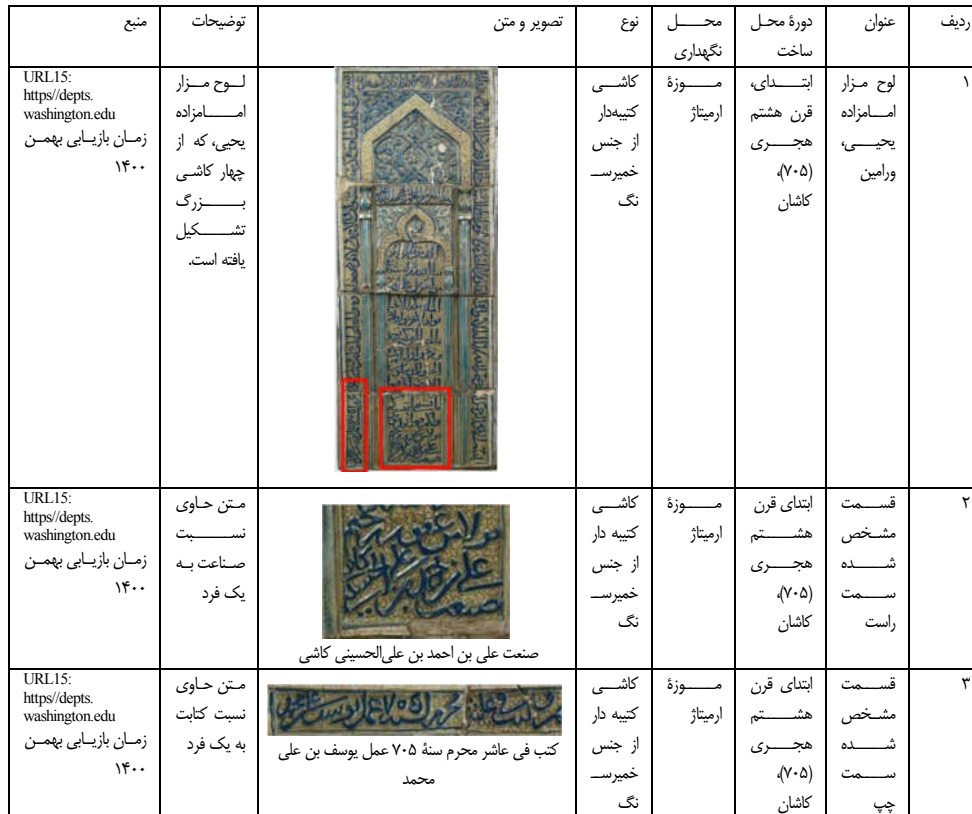 ردیف
عنوان
دورۀ محل
ساخت
محل
نگهداری
نوع
تصویر و متن
توضیحات
منبع
۱
لوح مزار
امامزاده
یحیی،
ورامین
ابتدای،
قرن هشتم
هجری
(۷۰۵)،
کاشان
موزۀ
ارمیتاژ
کاشی
کتیبه‌دار
از جنس
خمیرسـ
نگ
لوح مزار
امامزاده
یحیی، که از
چهار کاشی
بزرگ
تشکیل
یافته است.
URL15:
https//depts.
washington.edu
زمان بازیابی بهمن
۱۴۰۰
۲
قسمت
مشخص
شده
سمت
راست
ابتدای قرن
هشتم
هجری
(۷۰۵)،
کاشان
موزۀ
ارمیتاژ
کاشی
کتیبه دار
از جنس
خمیرسـ
نگ
صنعت علی بن احمد بن علی‌الحسینی کاشی
متن حاوی
نسبت
صناعت به
یک فرد
URL15:
https//depts.
washington.edu
زمان بازیابی بهمن
۱۴۰۰
۳
قسمت
مشخص
شده
سمت
چپ
ابتدای قرن
هشتم
هجری
(۷۰۵)،
کاشان
موزۀ
ارمیتاژ
کاشی
کتیبه دار
از جنس
خمیرسـ
نگ
کتب فی عاشر محرم سنۀ ۷۰۵ عمل یوسف بن علی
محمد
متن حاوی
نسبت کتابت
به یک فرد
URL15:
https//depts.
washington.edu
زمان بازیابی بهمن
۱۴۰۰